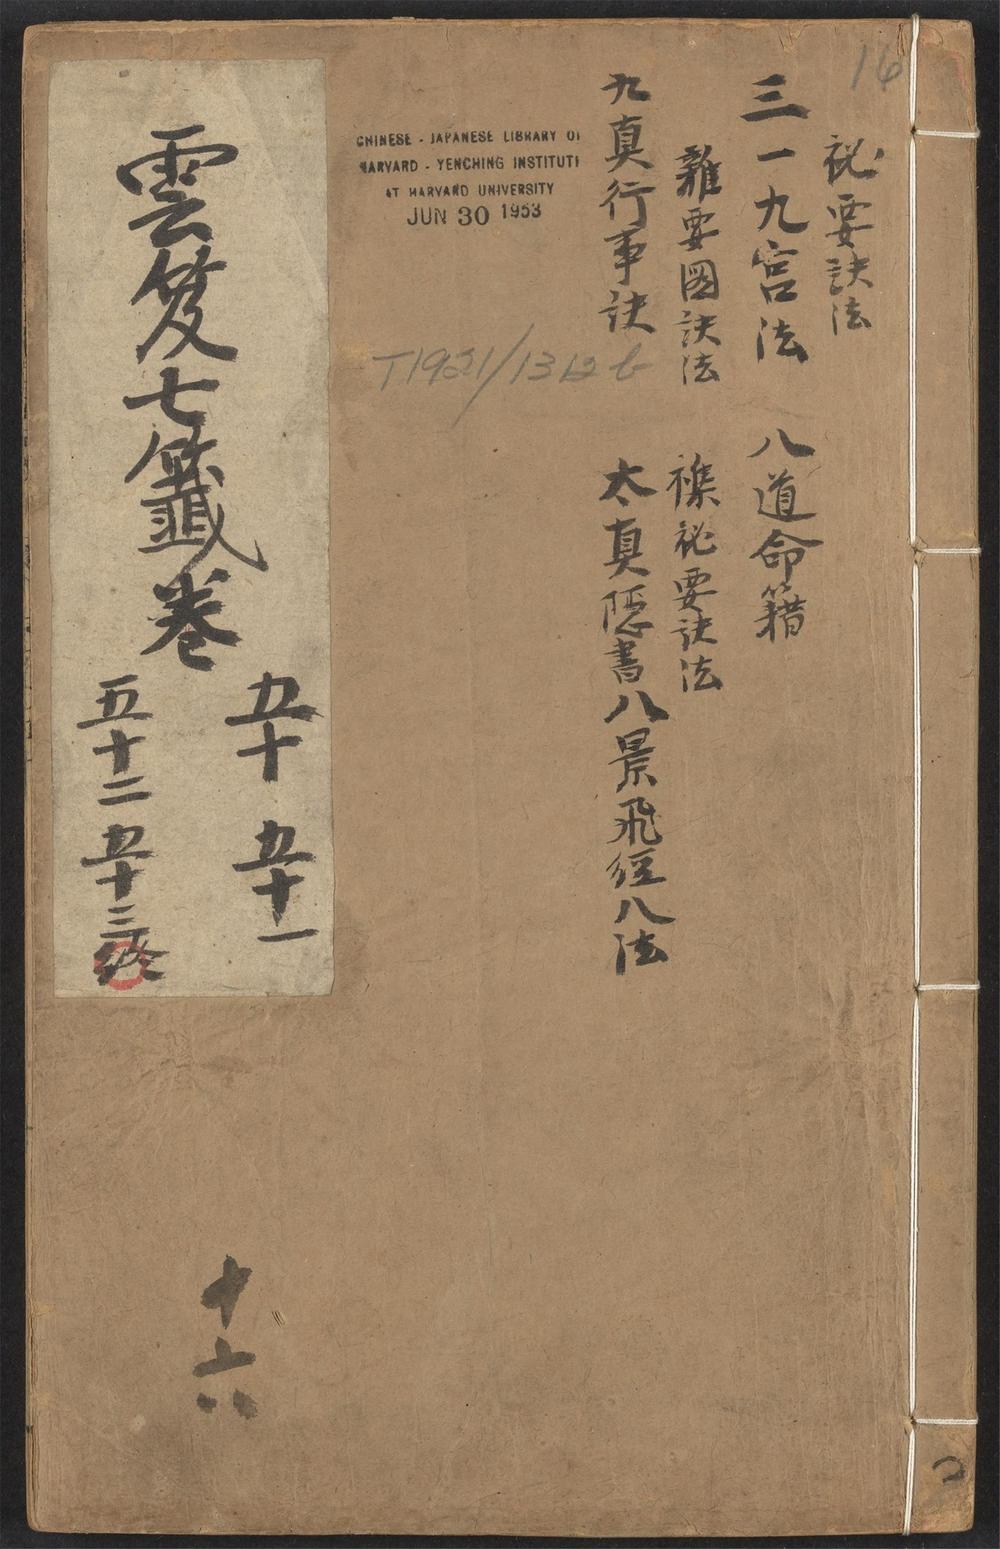 16
祕要訣法
三一九宮法 八道命籍
雜要圖訣法 襍祕要訣法
九真行事訣 太真隱書八景飛經八法
CHINESE - JAPANESE LIBRARY OF
HARVARD - YENCHING INSTITUTE
AT HARVARD UNIVERSITY
JUN 30 1953
T1921/1312b
雲笈七籤卷
五十 五十一
五十二 五十三
十六
2